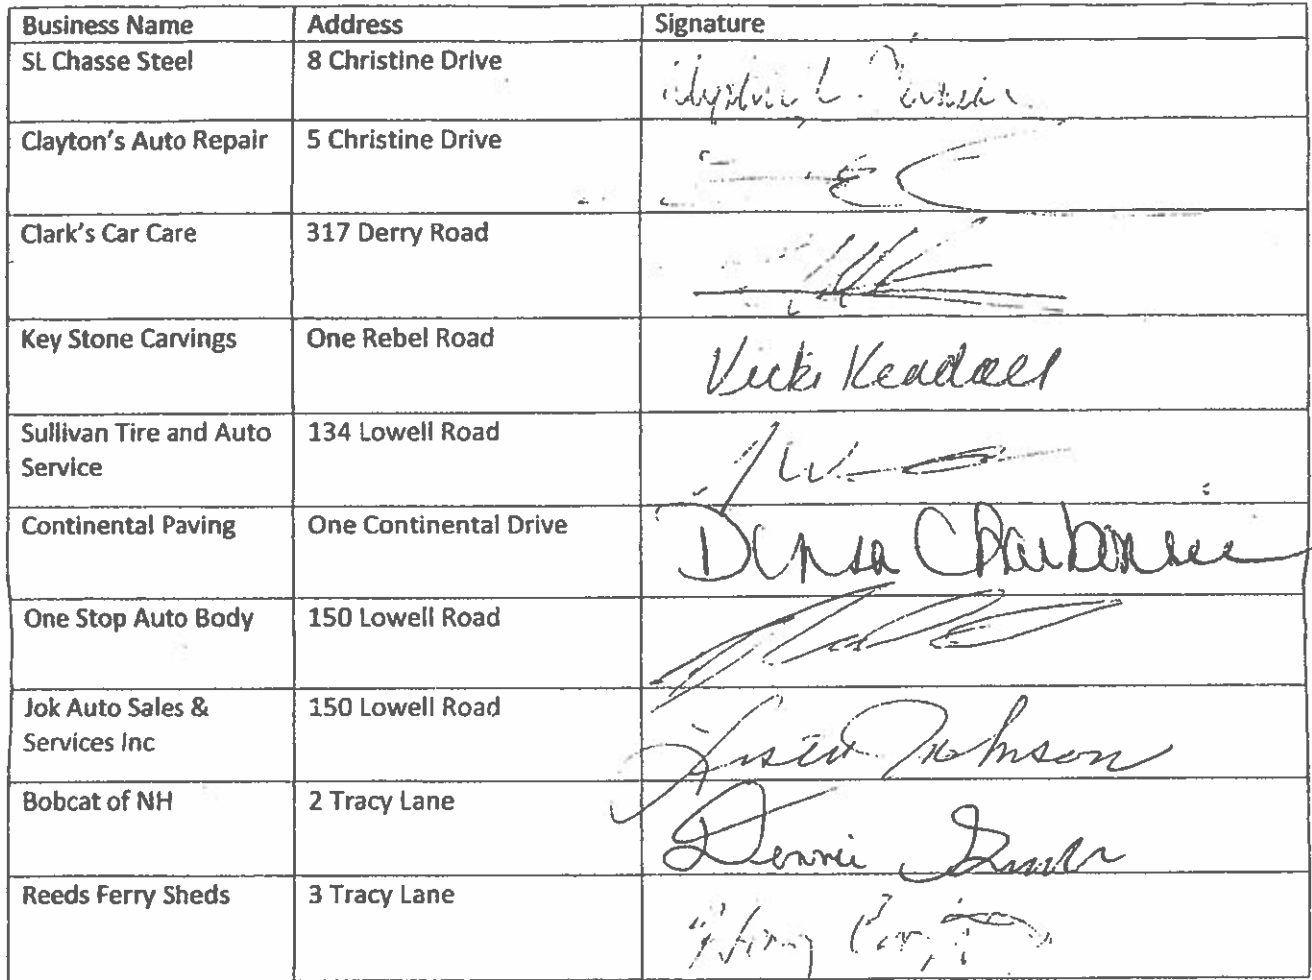 Business Name Address Signature
SL Chasse Steel 8 Christine Drive
Clayton's Auto Repair 5 Christine Drive
Clark's Car Care 317 Derry Road
Key Stone Carvings One Rebel Road Vicki Kendall
Sullivan Tire and Auto 134 Lowell Road
Service
Continental Paving One Continental Drive
One Stop Auto Body 150 Lowell Road
Jok Auto Sales & 150 Lowell Road
Services Inc Johnson
Bobcat of NH 2 Tracy Lane
Reeds Ferry Sheds 3 Tracy Lane